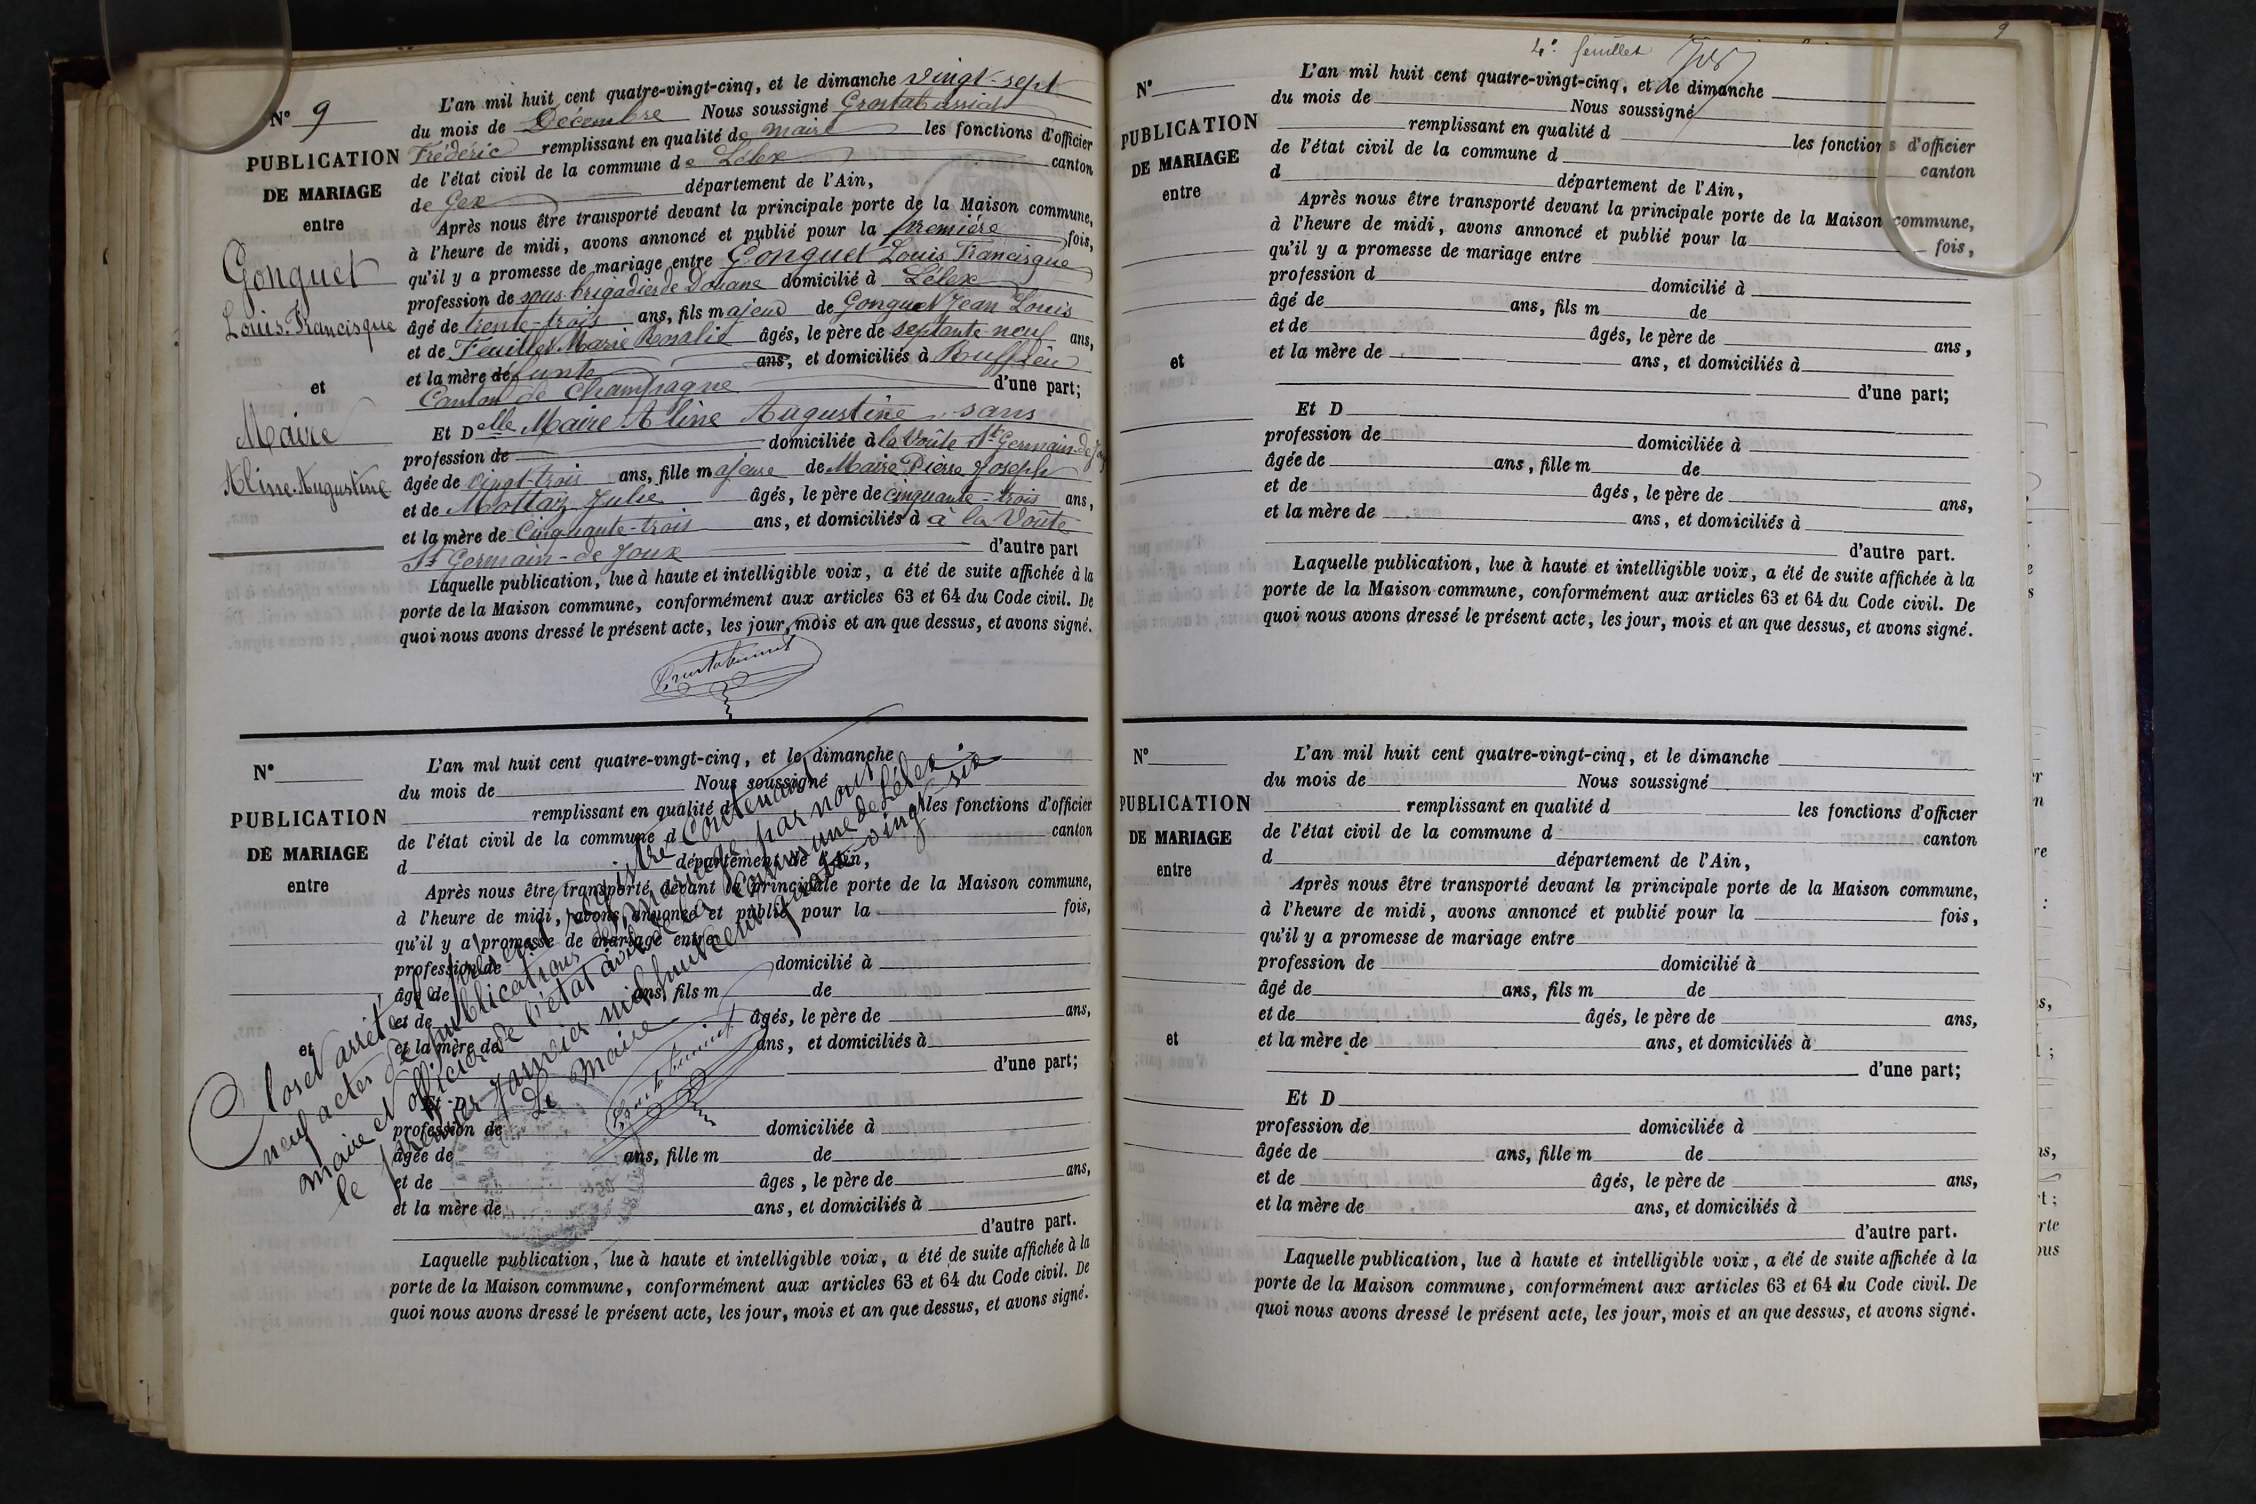 N° 9
PUBLICATION
DE MARIAGE
entre
Gonguet
Louis-Francisque
et
Maire
Aline-Augustine
L'an mil huit cent quatre-vingt-cinq, et le dimanche vingt-sept
du mois de Décembre Nous soussigné Grostabussiat
Frédéric remplissant en qualité de maire les fonctions d'officier
de l'état civil de la commune de Lélex canton
de Gex département de l'Ain,
Après nous être transporté devant la principale porte de la Maison commune,
à l'heure de midi, avons annoncé et publié pour la première fois,
qu'il y a promesse de mariage entre Gonguet Louis Francisque
profession de sous-brigadier de Douane domicilié à Lélex
âgé de trente-trois ans, fils majeur de Gonguet Jean Louis
et de Feuillet Marie Rosalie âgés, le père de septante-neuf ans,
et la mère défunte ans, et domiciliés à Ruffieu
Canton de Champagne d'une part;
Et Delle Maire Aline Augustine sans
profession de domiciliée à la Voûte St Germain-de-Joux
âgée de vingt-trois ans, fille majeure de Maire Pierre Joseph
et de Mottaz Julie âgés, le père de cinquante-trois ans,
et la mère de Cinquante-trois ans, et domiciliés à à la Voûte
St Germain-de-Joux d'autre part
Laquelle publication, lue à haute et intelligible voix, a été de suite affichée à la
porte de la Maison commune, conformément aux articles 63 et 64 du Code civil. De
quoi nous avons dressé le présent acte, les jour, mois et an que dessus, et avons signé.
N°
PUBLICATION
DE MARIAGE
entre
et
L'an mil huit cent quatre-vingt-cinq, et le dimanche
du mois de Nous soussigné
remplissant en qualité d les fonctions d'officier
de l'état civil de la commune d canton
d département de l'Ain,
Après nous être transporté devant la principale porte de la Maison commune,
à l'heure de midi, avons annoncé et publié pour la fois,
qu'il y a promesse de mariage entre
profession de domicilié à
âgé de ans, fils m de
et de âgés, le père de ans,
et la mère de ans, et domiciliés à
d'une part;
Et D
profession de domiciliée à
âgée de ans, fille m de
et de âges, le père de ans,
et la mère de ans, et domiciliés à
d'autre part.
Laquelle publication, lue à haute et intelligible voix, a été de suite affichée à la
porte de la Maison commune, conformément aux articles 63 et 64 du Code civil. De
quoi nous avons dressé le présent acte, les jour, mois et an que dessus, et avons signé.
Clos et arrêté le présent registre contenant
neuf actes de publications de mariage par nous
maire et officier de l'état civil de la Commune de Lélex
le premier Janvier mil huit cent quatre-vingt-six
Le Maire
4e feuillet
9
N°
PUBLICATION
DE MARIAGE
entre
et
L'an mil huit cent quatre-vingt-cinq, et le dimanche
du mois de Nous soussigné
remplissant en qualité d les fonctions d'officier
de l'état civil de la commune d canton
d département de l'Ain,
Après nous être transporté devant la principale porte de la Maison commune,
à l'heure de midi, avons annoncé et publié pour la fois,
qu'il y a promesse de mariage entre
profession d domicilié à
âgé de ans, fils m de
et de âgés, le père de ans,
et la mère de ans, et domiciliés à
d'une part;
Et D
profession de domiciliée à
âgée de ans, fille m de
et de âgés, le père de ans,
et la mère de ans, et domiciliés à
d'autre part.
Laquelle publication, lue à haute et intelligible voix, a été de suite affichée à la
porte de la Maison commune, conformément aux articles 63 et 64 du Code civil. De
quoi nous avons dressé le présent acte, les jour, mois et an que dessus, et avons signé.
N°
PUBLICATION
DE MARIAGE
entre
et
L'an mil huit cent quatre-vingt-cinq, et le dimanche
du mois de Nous soussigné
remplissant en qualité d les fonctions d'officier
de l'état civil de la commune d canton
d département de l'Ain,
Après nous être transporté devant la principale porte de la Maison commune,
à l'heure de midi, avons annoncé et publié pour la fois,
qu'il y a promesse de mariage entre
profession de domicilié à
âgé de ans, fils m de
et de âgés, le père de ans,
et la mère de ans, et domiciliés à
d'une part;
Et D
profession de domiciliée à
âgée de ans, fille m de
et de âgés, le père de ans,
et la mère de ans, et domiciliés à
d'autre part.
Laquelle publication, lue à haute et intelligible voix, a été de suite affichée à la
porte de la Maison commune, conformément aux articles 63 et 64 du Code civil. De
quoi nous avons dressé le présent acte, les jour, mois et an que dessus, et avons signé.